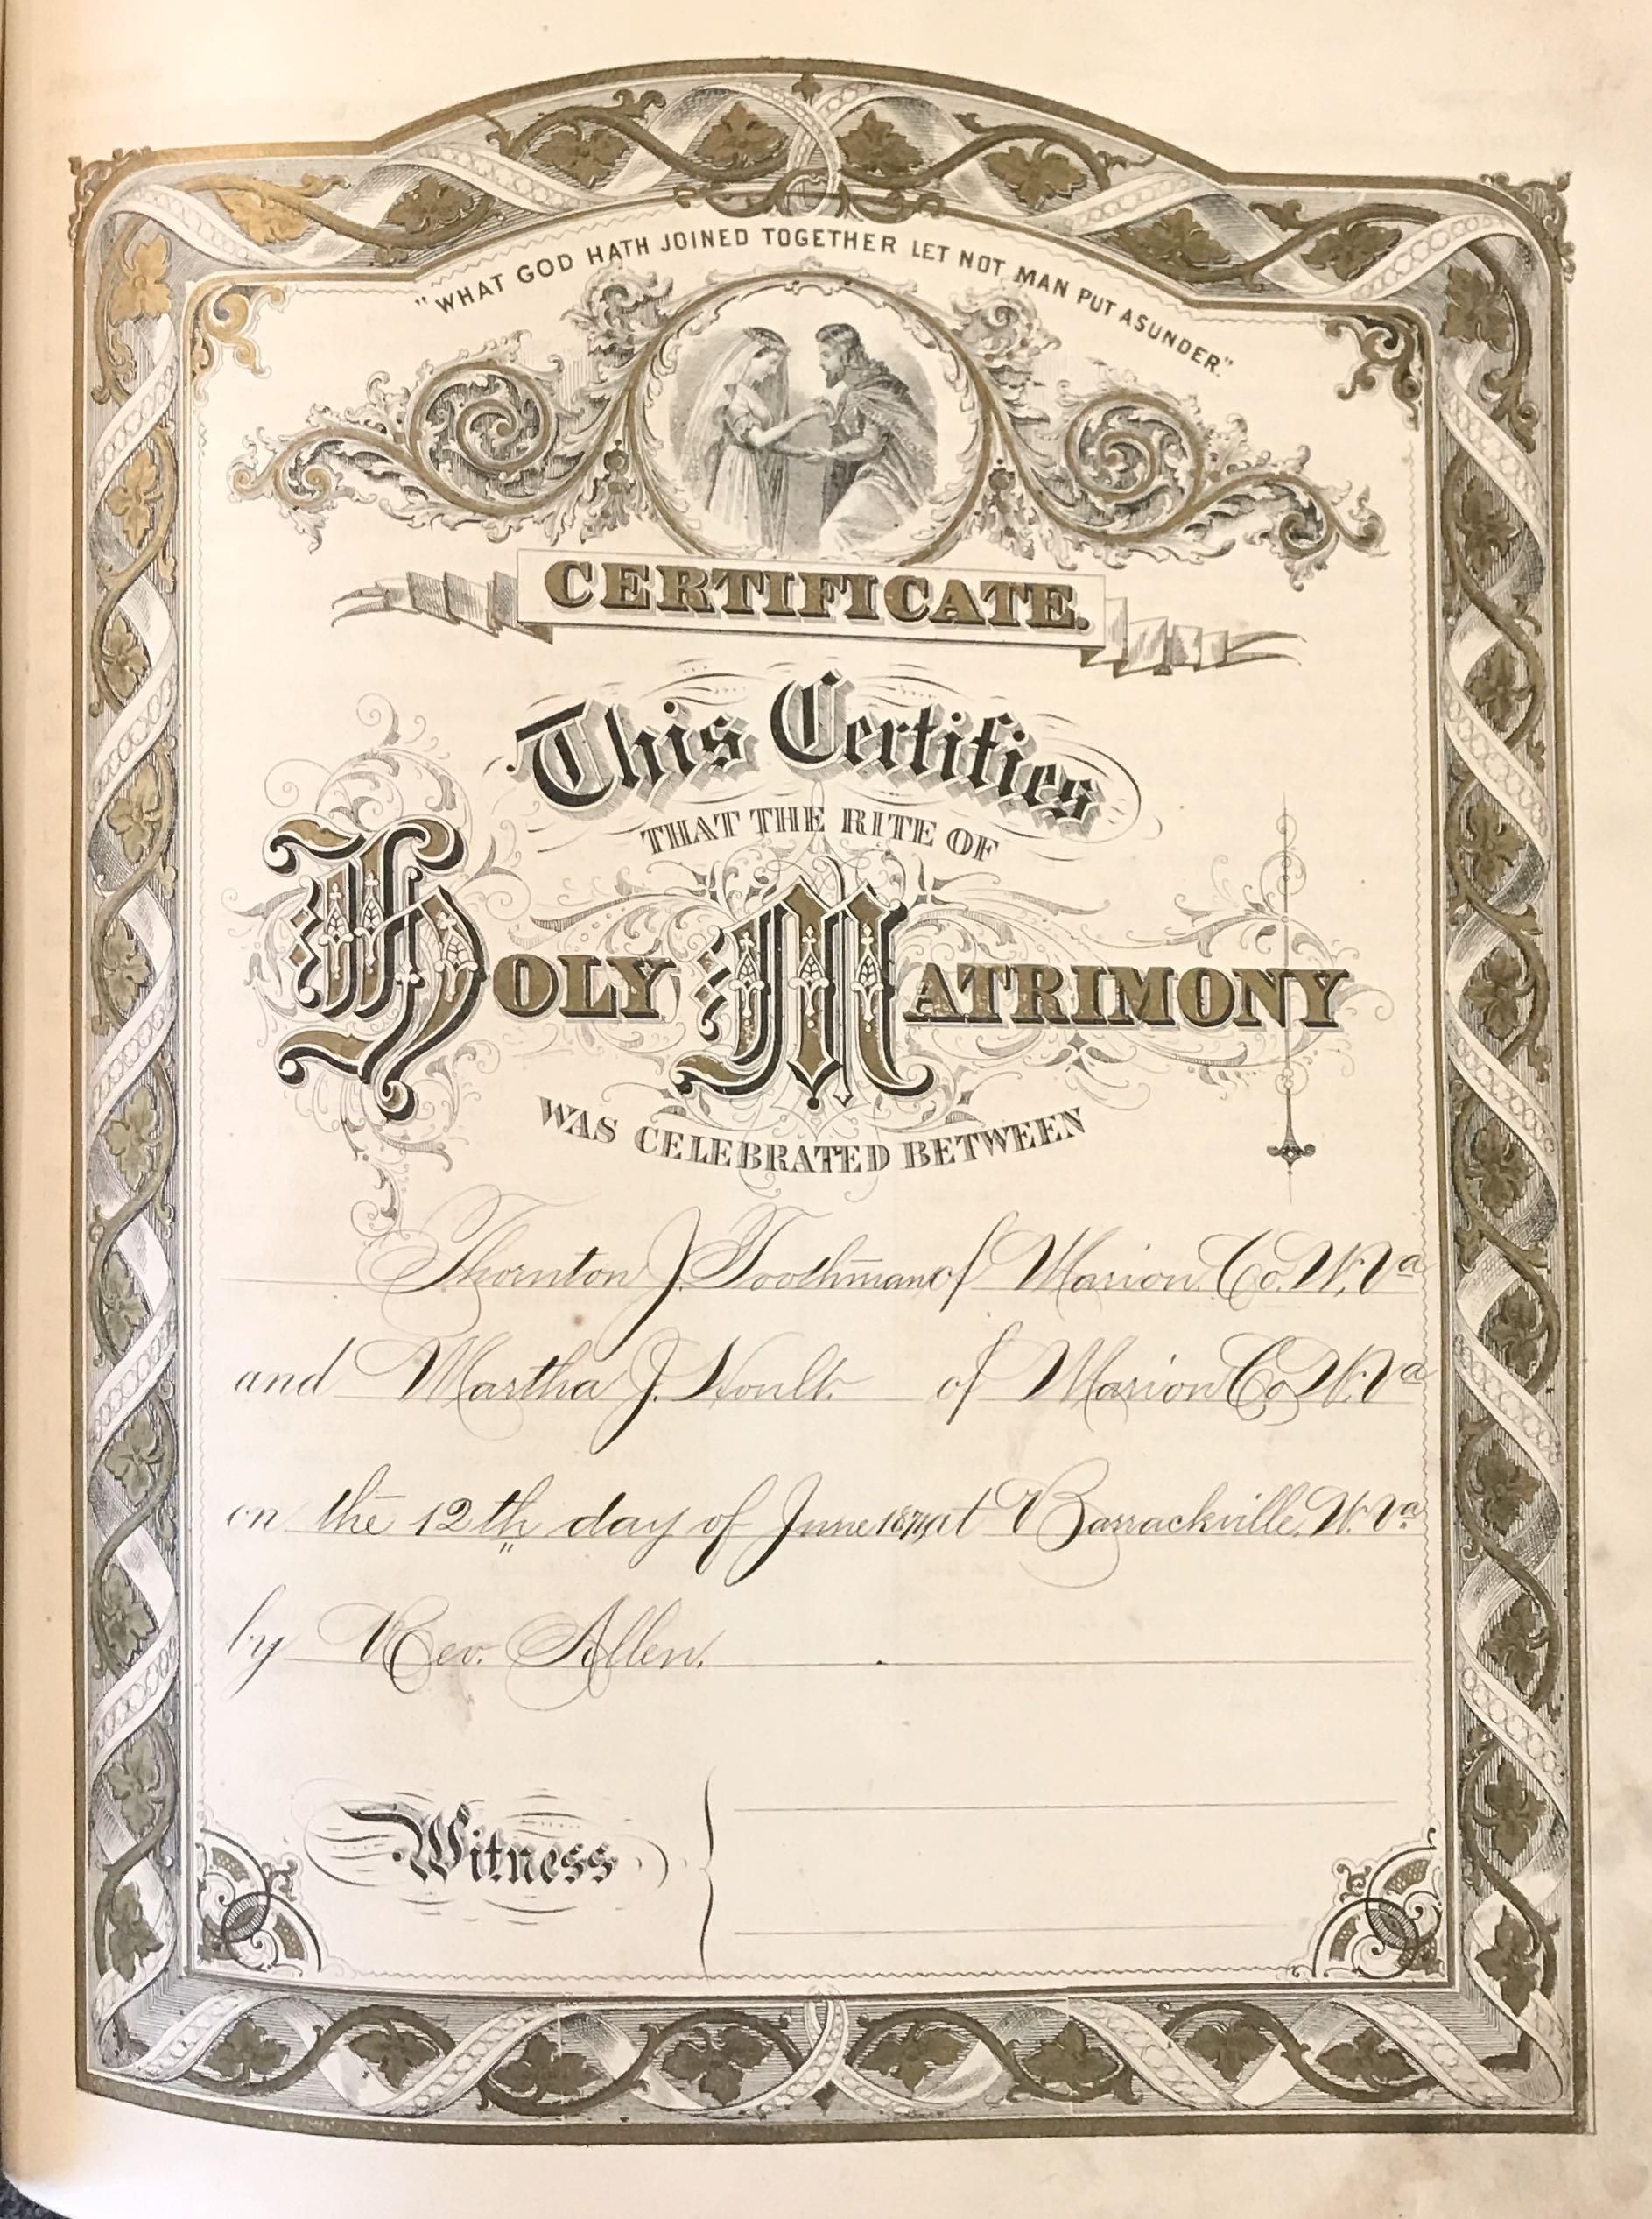 "WHAT GOD HATH JOINED TOGETHER LET NOT MAN PUT ASUNDER."
CERTIFICATE.
This Certifies
THAT THE RITE OF
HOLY MATRIMONY
WAS CELEBRATED BETWEEN
Thornton J. Toothman of Marion Co. W. Va
and Martha J. Hoult. of Marion Co W. Va
on the 12th day of June at Barrackville, W. Va.
by Rev. Allen.
Witness